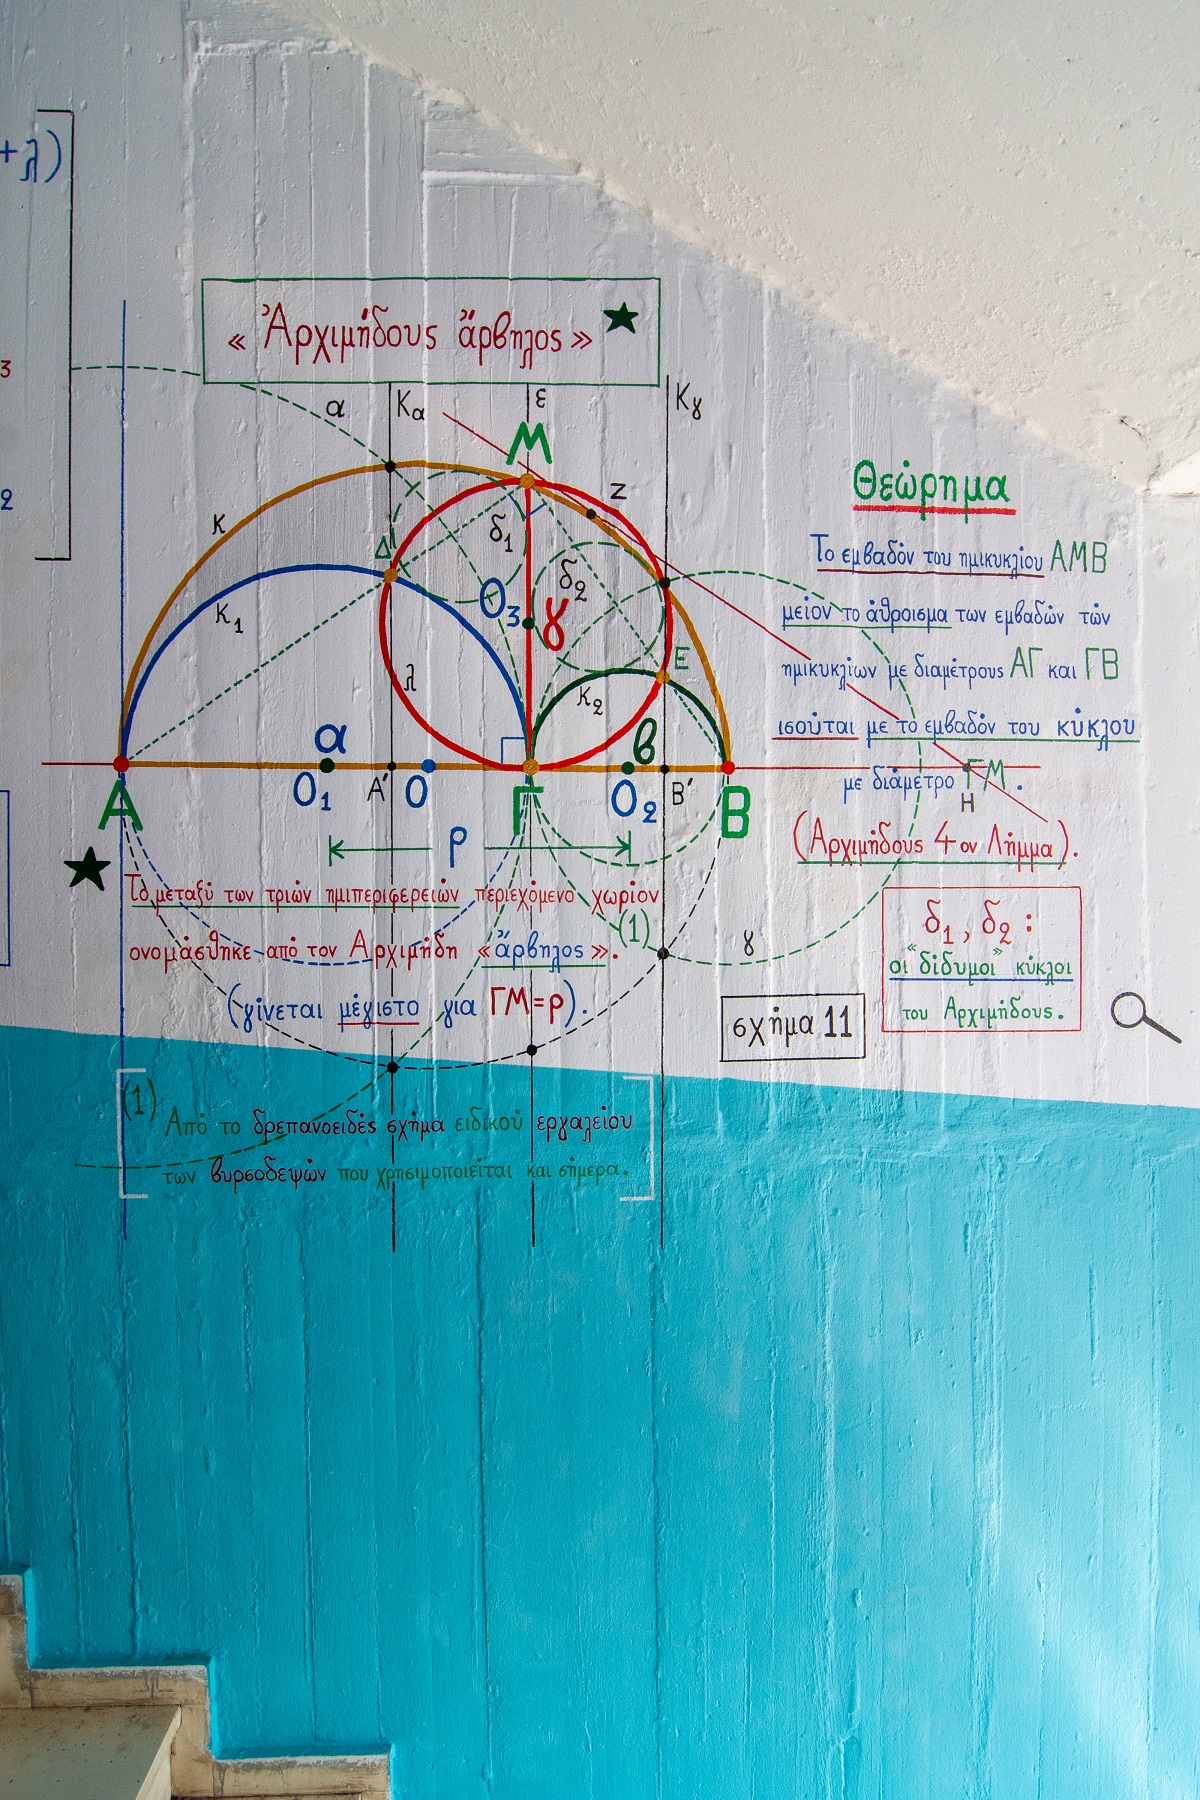 +λ)
3
2
« Ἀρχιμήδους ἄρβηλος »
α
Κα
ε
Κγ
Μ
Ζ
κ
Δ
δ1
δ2
Ο3
γ
κ1
Ε
λ
κ2
α
β
Α
Ο1
Α΄
Ο
Γ
Ο2
Β΄
Β
Η
ρ
Θεώρημα
Το εμβαδόν του ημικυκλίου ΑΜΒ
μείον το άθροισμα των εμβαδών τών
ημικυκλίων με διαμέτρους ΑΓ και ΓΒ
ισούται με το εμβαδόν του κύκλου
με διάμετρο ΓΜ.
(Αρχιμήδους 4ον Λήμμα).
Το μεταξύ των τριών ημιπεριφερειών περιεχόμενο χωρίον
ονομάσθηκε από τον Αρχιμήδη «ἄρβηλος». (1)
(γίνεται μέγιστο για ΓΜ=ρ).
γ
δ1, δ2 :
οι "δίδυμοι" κύκλοι
του Αρχιμήδους.
σχήμα 11
(1) Από το δρεπανοειδές σχήμα ειδικού εργαλείου
των βυρσοδεψών που χρησιμοποιείται και σήμερα.